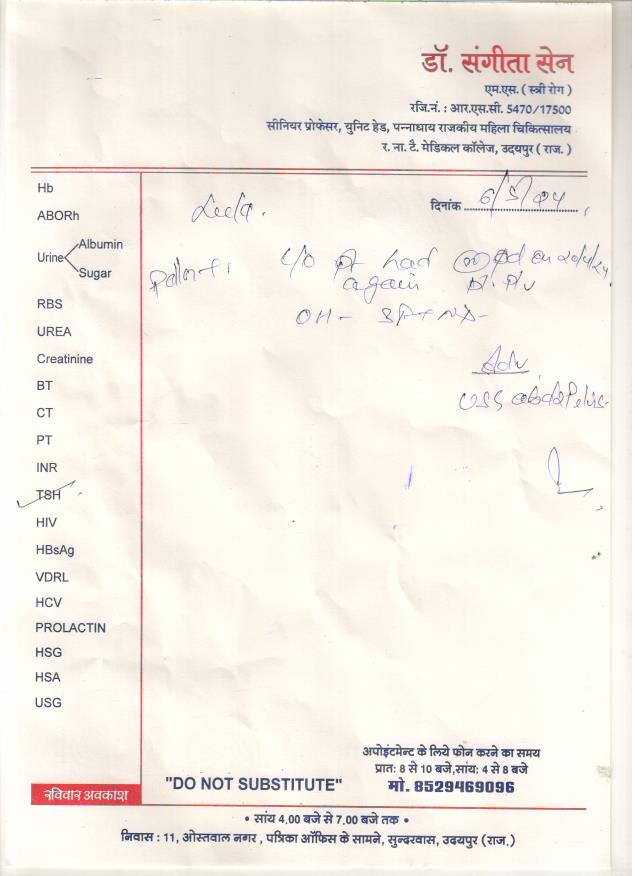 डॉ. संगीता सेन
एम.एस. ( स्त्री रोग )
रजि.नं. : आर.एस.सी. 5470/17500
सीनियर प्रोफेसर, युनिट हेड, पन्नाधाय राजकीय महिला चिकित्सालय
र. ना. टै. मेडिकल कॉलेज, उदयपुर ( राज. )
Hb
ABORh
Urine
Albumin
Sugar
RBS
UREA
Creatinine
BT
CT
PT
INR
TSH
HIV
HBsAg
VDRL
HCV
PROLACTIN
HSG
HSA
USG
रविवार अवकाश
दिनांक 6/5/24
c/o pt had on 20/4/24
again
OH -
Adv
USG
अपोइंटमेन्ट के लिये फोन करने का समय
प्रातः 8 से 10 बजे,सांयः 4 से 8 बजे
"DO NOT SUBSTITUTE" मो. 8529469096
• सांय 4.00 बजे से 7.00 बजे तक •
निवास : 11, ओस्तवाल नगर , पत्रिका ऑफिस के सामने, सुन्दरवास, उदयपुर (राज.)